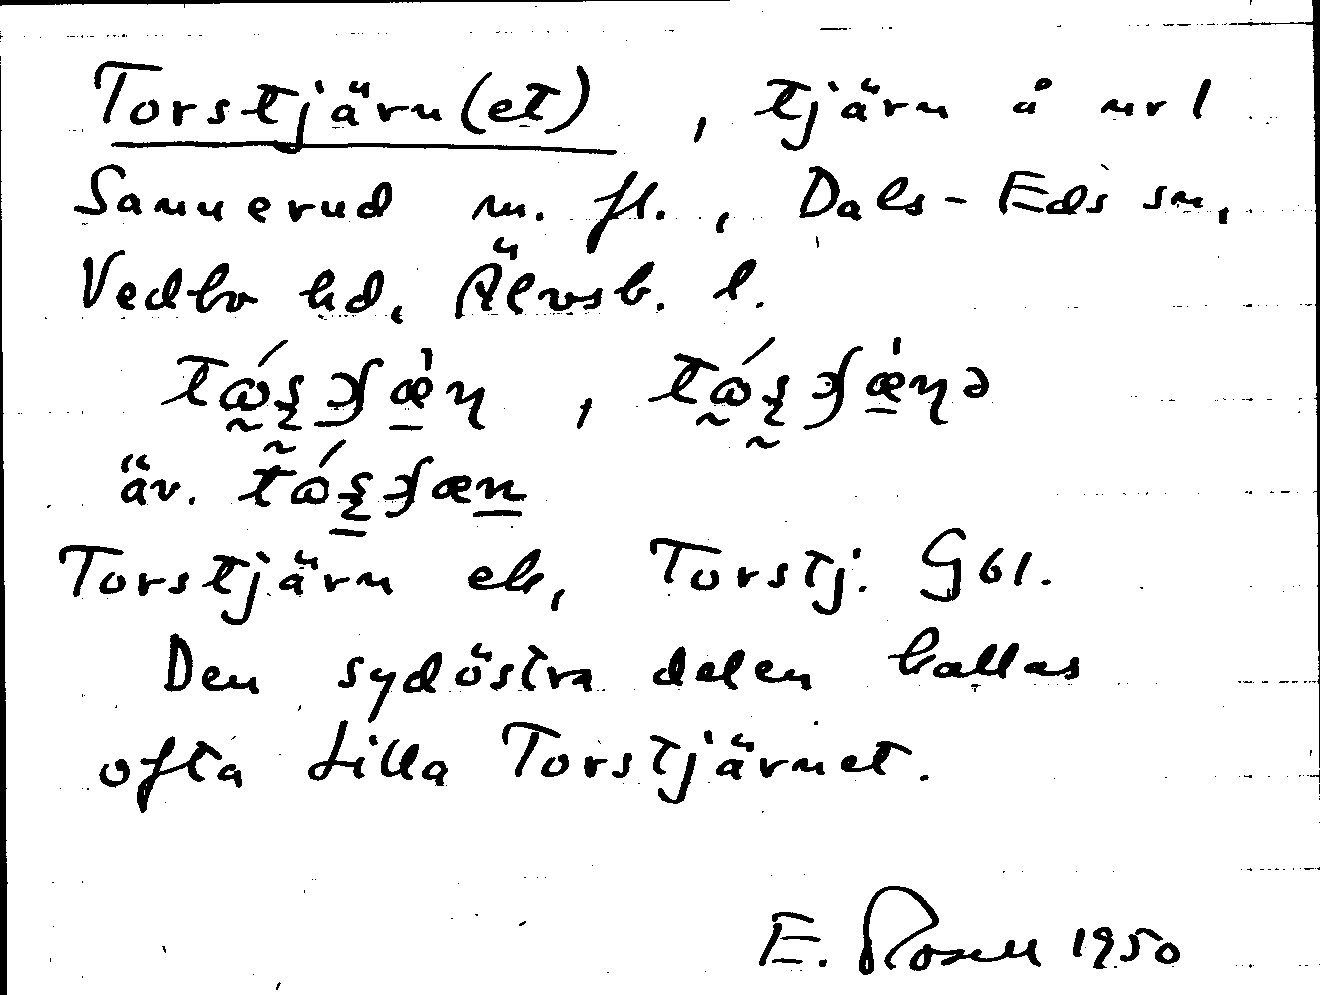 Torstjärn(et), tjärn å nr 1
Sannerud m. fl., Dals-Eds sn,
Vedbo hd, Älvsb. l.
äv.
Torstjärn ek, Torstj. G61.
Den sydöstra delen kallas
ofta Lilla Torstjärnet.
E. Rosell 1950